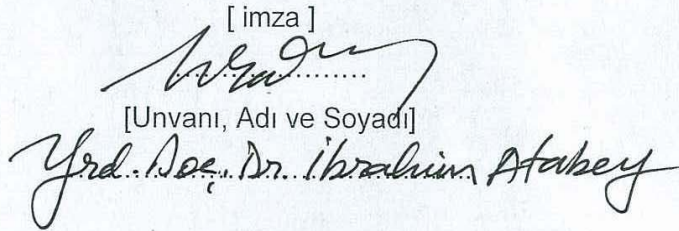 [ imza ]
....................
[Unvanı, Adı ve Soyadı]
Yrd. Doç. Dr. İbrahim Atabey